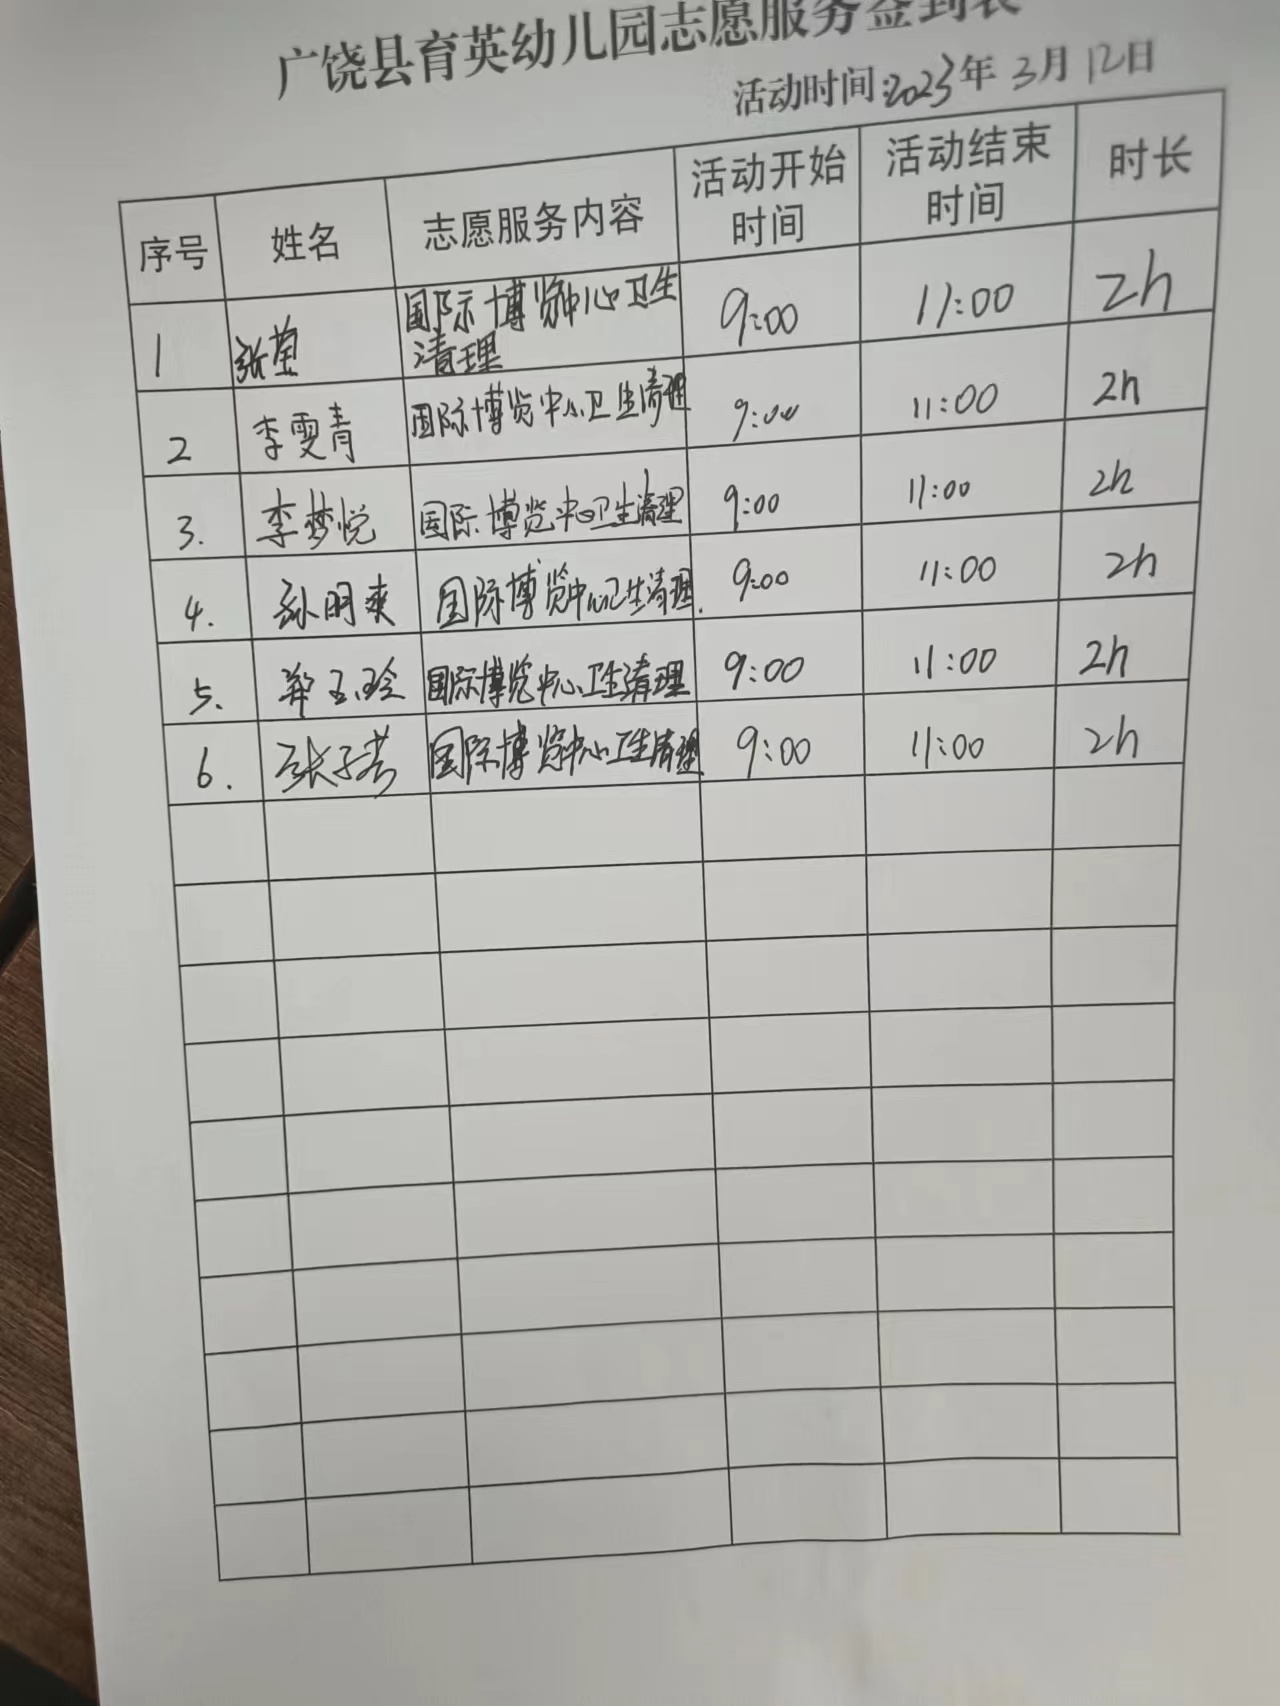 广饶县育英幼儿园志愿服务签到表
活动时间:2023年3月12日
序号 姓名 志愿服务内容 活动开始时间 活动结束时间 时长
1 张莹 国际博览中心卫生清理 9:00 11:00 2h
2 李雯青 国际博览中心卫生清理 9:00 11:00 2h
3. 李梦悦 国际博览中心卫生清理 9:00 11:00 2h
4. 孙明爽 国际博览中心卫生清理. 9:00 11:00 2h
5. 郑玉玲 国际博览中心卫生清理 9:00 11:00 2h
6. 张子芸 国际博览中心卫生清理 9:00 11:00 2h